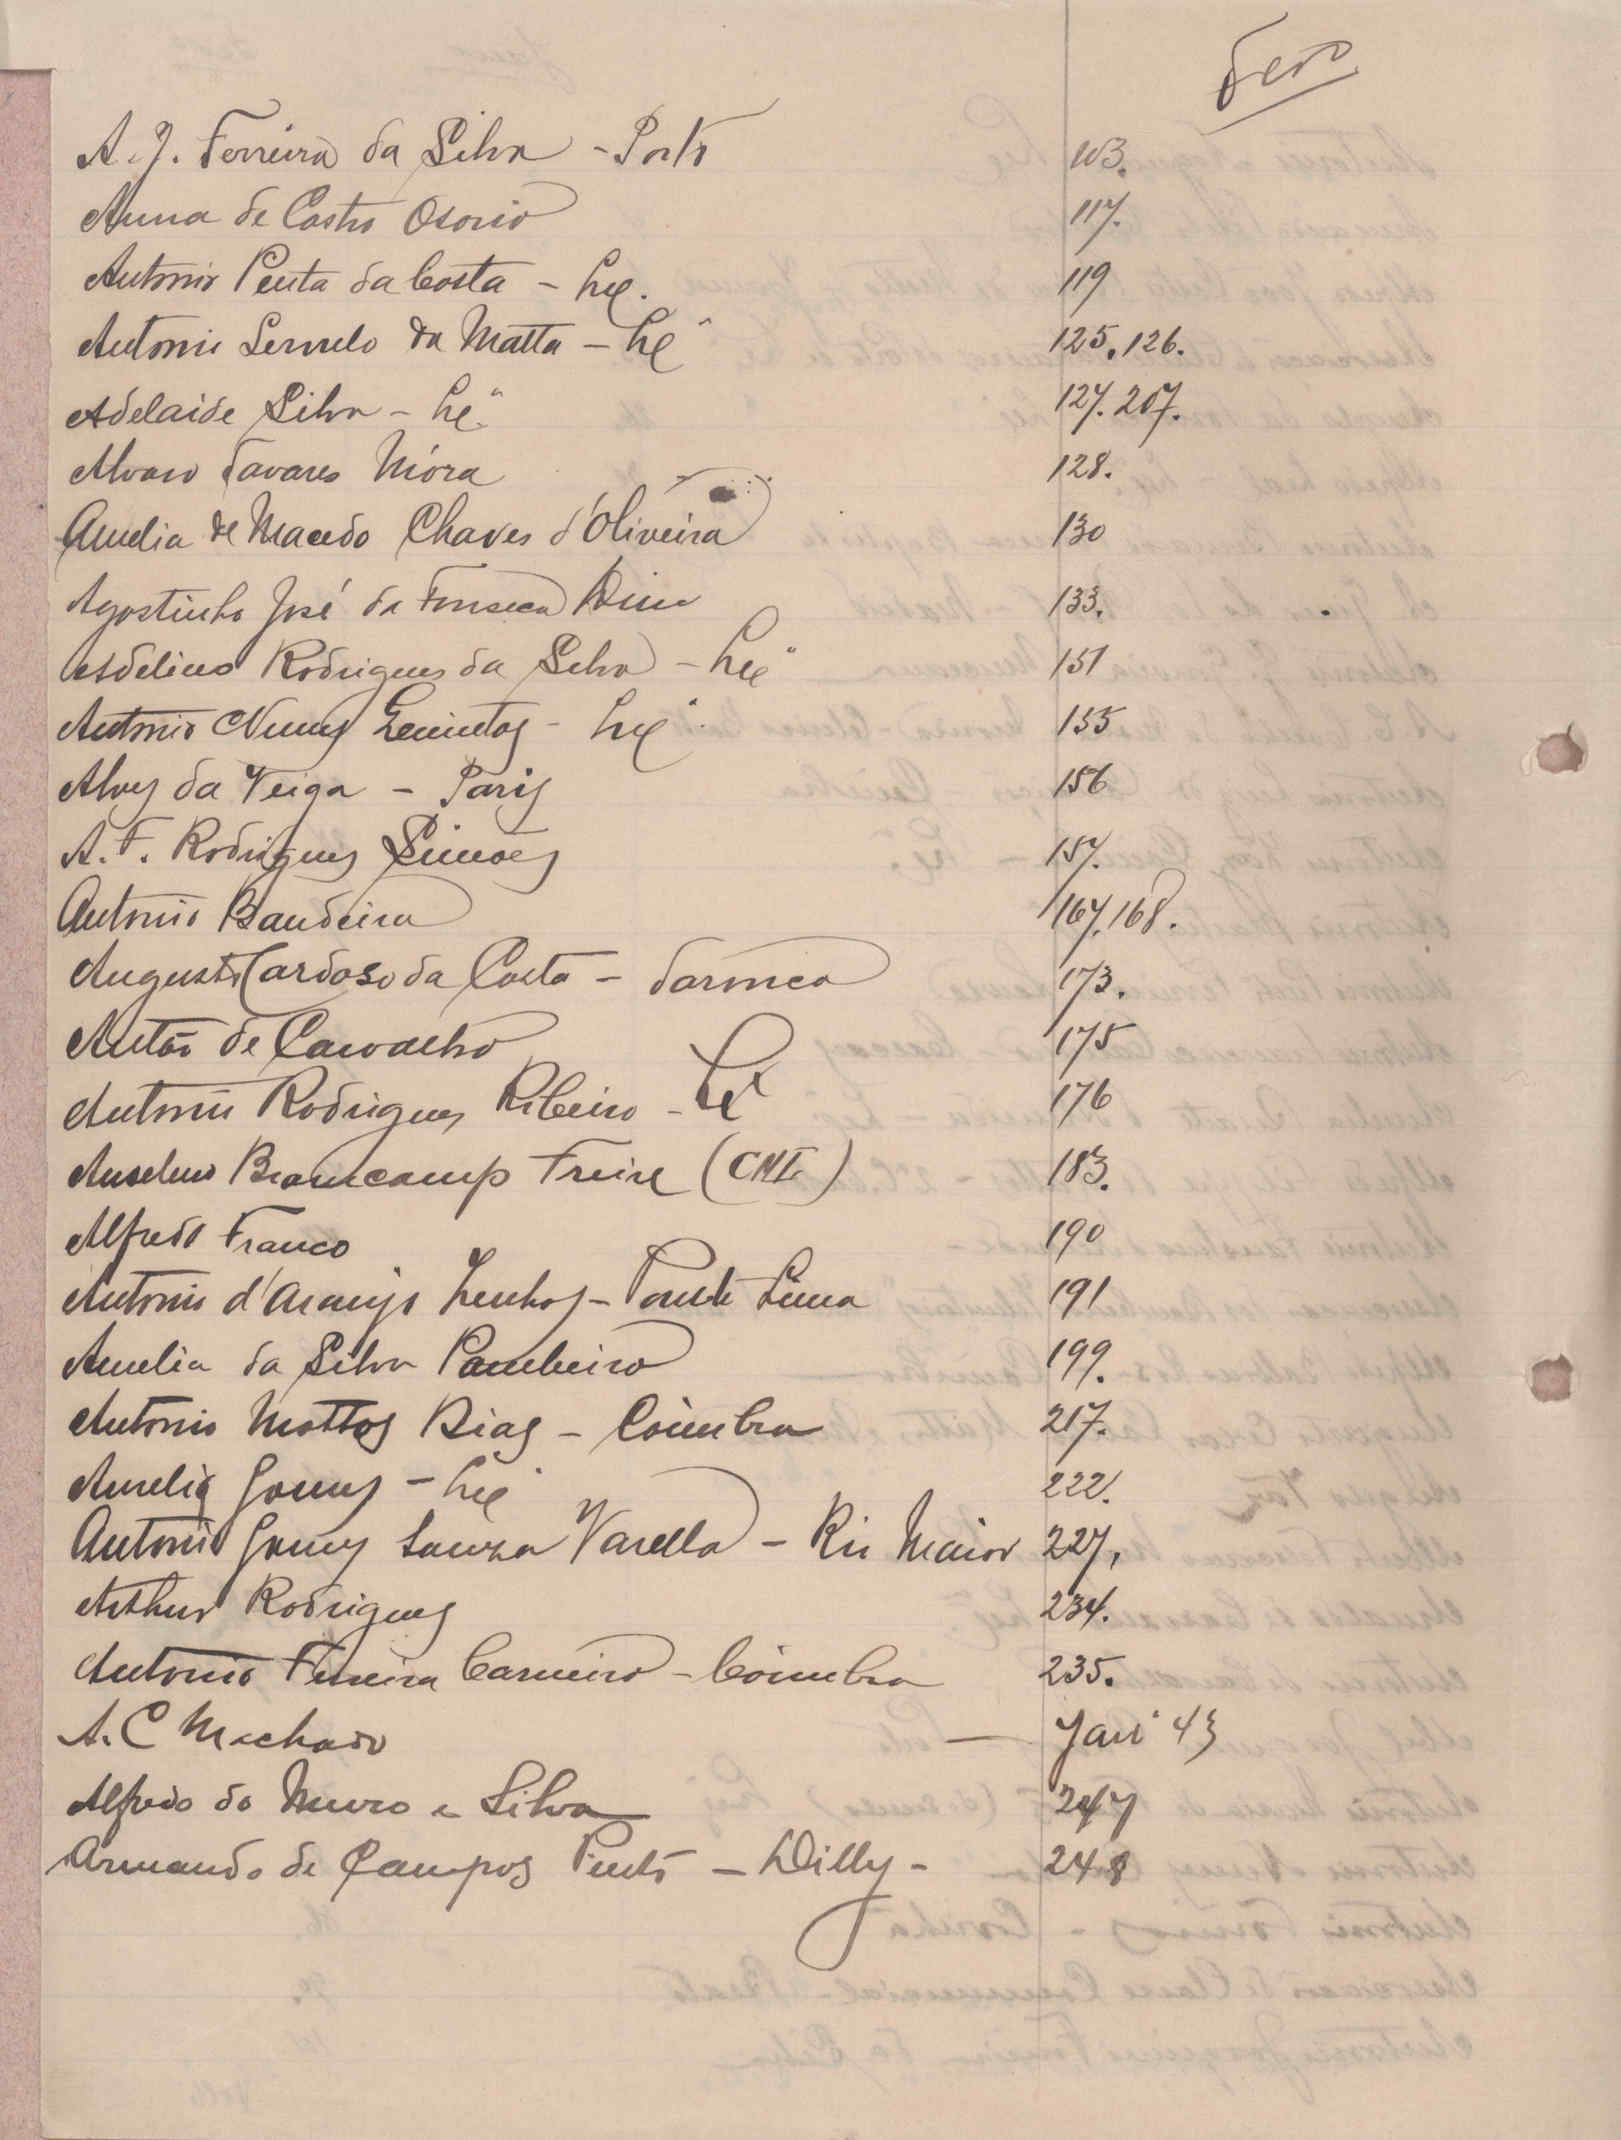 A. J. Ferreira da Silva - Porto 103.
Anna de Castro Osorio 117.
Antonio Penta da Costa - Lxª. 119
Antonio Servulo da Matta - Lxª 125, 126.
Adelaide Silva - Lxª 127. 207.
Alvaro Tavares Móra 128.
Amelia de Macedo Chaves d'Oliveira 130
Agostinho José da Fonseca 133.
Adelino Rodrigues da Silva - Lxª 151
Antonio Nunes - Lxª 155
Alves da Veiga - Paris 156
A. F. Rodrigues Simões 157.
Antonio Bandeira 167, 168.
Augusto Cardoso da Costa - 173.
Antão de Carvalho 175
Antonio Rodrigues Ribeiro - Lxª 176
Anselmo Braamcamp Freire 183.
Alfredo Franco 190
Antonio d'Araujo - Ponte Lima 191
Amelia da Silva 199.
Antonio Mattos Dias - Coimbra 217.
Amelia Gomes - Lxª 222.
Antonio Gomes Souza Varella - Rio Maior 227,
Arthur Rodrigues 234.
Antonio Ferreira Carneiro - Coimbra 235.
A. C Machado — 43
Alfredo do Muro e Silva 247
Armando de Campos Pinto - Dilly - 248